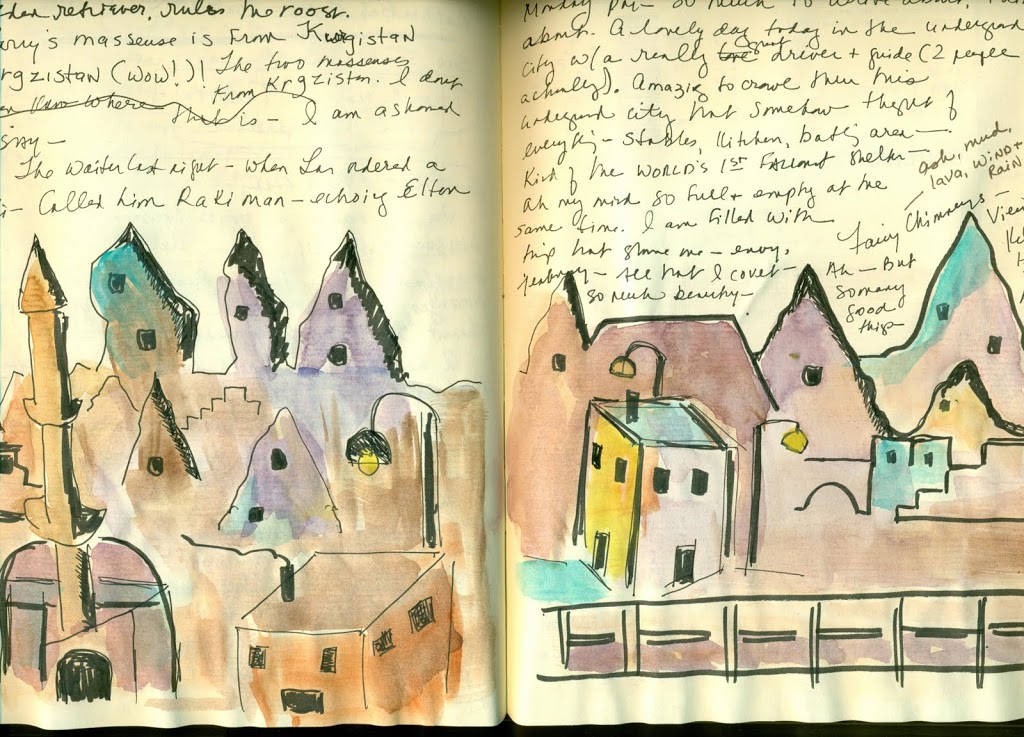 retriever, rules the roost.
masseuse is from Kyrgistan
rgzistan (wow!)! The two masseuses
from Krgzistan. I dont
Know where
that is - I am ashamed
say -
The waiter last night - when ordered a
- Called him Raki man - echoing Elton
Monday pm - so much to
about. A lovely day today in the underground
city w/ a really great driver + guide (2 people
actually). Amazing to crawl thru this
underground city that somehow thought of
everything - stables, kitchen, bathing area -
Kind of the WORLD'S 1ST FALLOUT Shelter -
ah my mind so full + empty at the
same time. I am filled with
trip that shame me - envy,
jealousy - all that I covet -
so much beauty -
ash, mud,
lava, WIND +
RAIN
Fairy Chimneys -
Ah - But
so many
good
things -